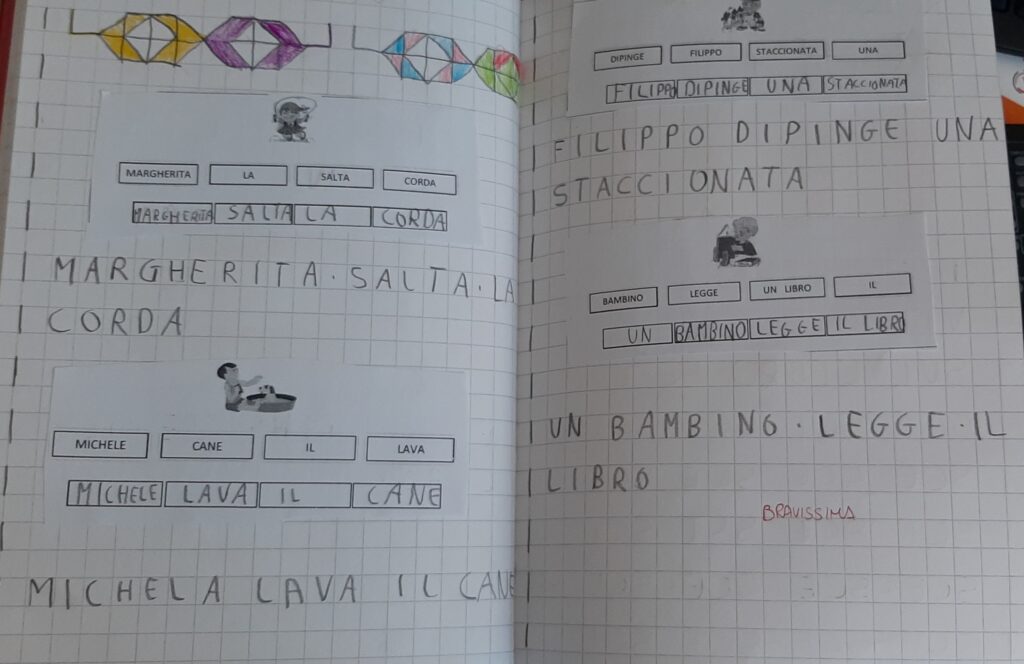 MARGHERITA LA SALTA CORDA
MARGHERITA SALTA LA CORDA
MARGHERITA·SALTA·LA
CORDA
MICHELE CANE IL LAVA
MICHELE LAVA IL CANE
MICHELA LAVA IL CANE
DIPINGE FILIPPO STACCIONATA UNA
FILIPPO DIPINGE UNA STACCIONATA
FILIPPO DIPINGE UNA
STACCIONATA
BAMBINO LEGGE UN LIBRO IL
UN BAMBINO LEGGE IL LIBRO
UN BAMBINO·LEGGE·IL
LIBRO
BRAVISSIMA